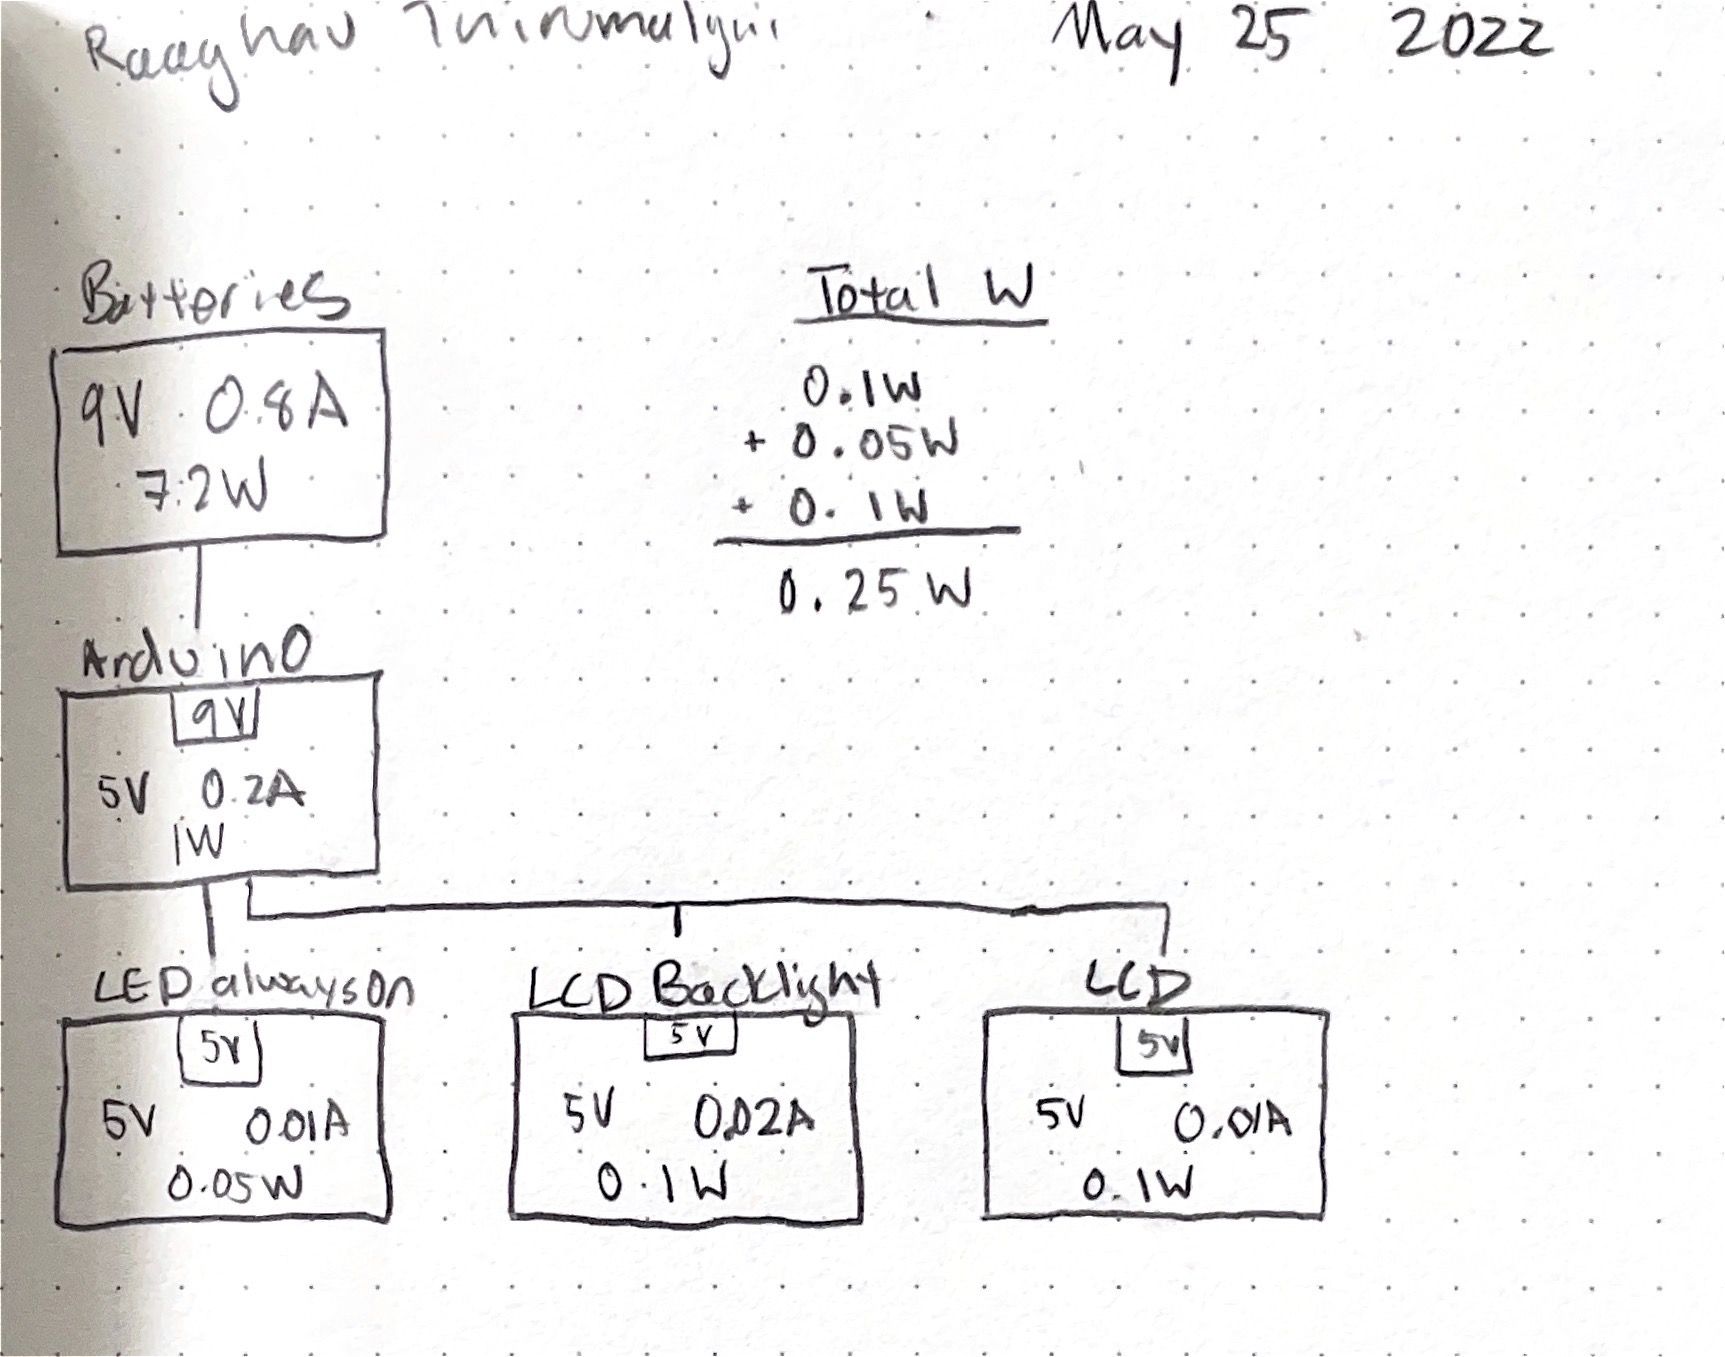 Raaghav May 25 2022
Batteries
9V 0.8A
7.2W
Total W
0.1W
+ 0.05W
+ 0.1W
0.25W
Arduino
9V
5V 0.2A
1W
LED always On
5V
5V 0.01A
0.05W
LCD Backlight
5V
5V 0.02A
0.1W
LCD
5V
5V 0.01A
0.1W